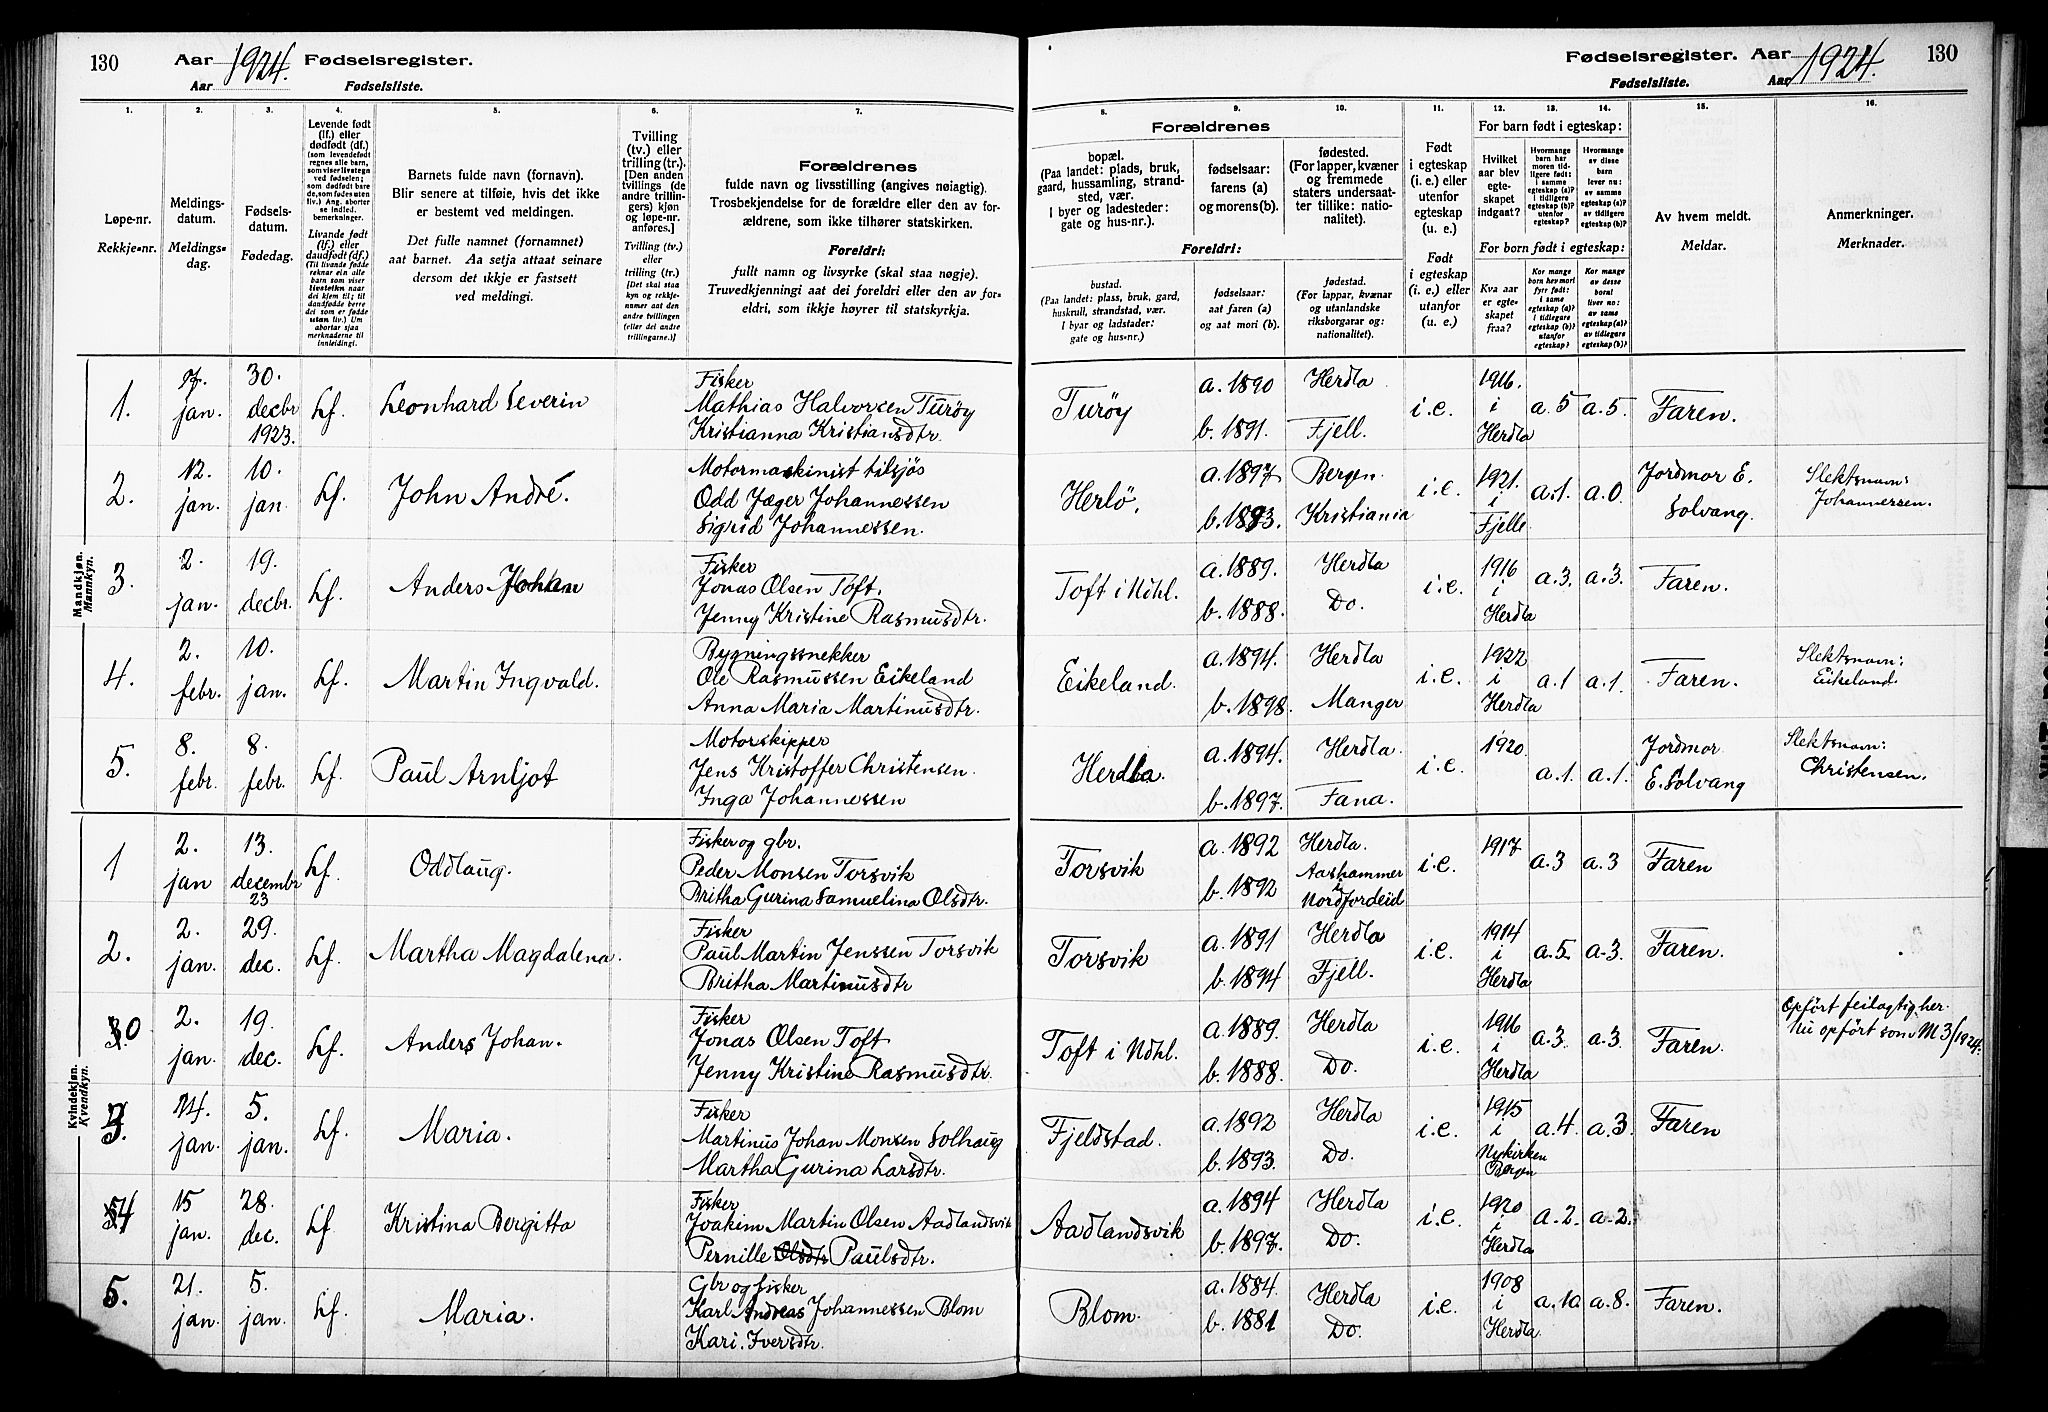 130 Aar 1924. Fødselsregister.
Aar Fødselsliste.
Fødselsregister. Aar 1924. 130
Fødselsliste. Aar
1. 2. 3. 4. 5. 6. 7. 8. 9. 10. 11. 12. 13. 14. 15. 16.
Løpe-nr.
Rekkje-nr.
Meldings-
datum.
Meldings-
dag.
Fødsels-
datum.
Fødedag.
Levende født
(lf.) eller
dødfødt (df.)
Livande født
(lf.) eller
daudfødt (df.)
Barnets fulde navn (fornavn).
Blir senere at tilføie, hvis det ikke
er bestemt ved meldingen.
Det fulle namnet (fornamnet)
aat barnet. Aa setja attaat seinare
dersom det ikkje er fastsett
ved meldingi.
Tvilling
(tv.) eller
trilling (tr.).
[Den anden
tvillings (de
andre trillin-
gers) kjøn
og løpe-nr.
anføres.]
Tvilling (tv.)
eller
trilling (tr.)
Forældrenes
fulde navn og livsstilling (angives nøiagtig).
Trosbekjendelse for de forældre eller den av for-
ældrene, som ikke tilhører statskirken.
Foreldri:
fullt namn og livsyrke (skal staa nøgje).
Truvedkjenningi aat dei foreldri eller den av for-
eldri, som ikkje høyrer til statskyrkja.
Forældrenes
bopæl.
(Paa landet: plads, bruk,
gaard, hussamling, strand-
sted, vær.
I byer og ladesteder:
gate og hus-nr.).
fødselsaar:
farens (a)
og morens (b).
fødested.
(For lapper, kvæner
og fremmede
staters undersaat-
ter tillike: natio-
nalitet).
Foreldri:
bustad.
(Paa landet: plass, bruk, gard,
huskrull, strandstad, vær.
I byar og ladstader:
gate og hus-nr.)
fødselsaar:
aat faren (a)
og aat mori (b).
fødestad.
(For lappar, kvænar
og utanlandske
riksborgarar og:
nationalitet).
Født
i egteskap
(i. e.) eller
utenfor
egteskap
(u. e.)
Født
i egteskap
(i. e.) eller
utanfor
(u. e.)
For barn født i egteskap:
Hvilket
aar blev
egte-
skapet
indgaat?
For born født i egteskap:
Kva aar
er egte-
skapet
fraa?
Av hvem meldt.
Meldar.
Anmerkninger.
Merknader.
Mandkjøn.
Mannkyn.
1. 7. jan. 30. decbr 1923. Lf. Leonhard Severin Fisker
Mathias Halvorsen Turøy
Kristianna Kristiansdtr. Turøy a. 1890 b. 1891. Herdla Fjell. i.e. 1916. i Herdla a. 5 a. 5. Faren.
2. 12. jan. 10. jan. Lf. John André. Motormaskinist tilsjøs
Odd Jæger Johannessen
Sigrid Johannessen. Herlö. a. 1897 b. 1893. Bergen. Kristiania i.e. 1921. i Fjelle a. 1. a. 0. Jordmor E. Solvang. Slektsnavn: Johannessen.
3. 2. jan. 19. decbr. Lf. Anders Johan Fisker
Jonas Olsen Toft.
Jenny Kristine Rasmusdtr. Toft i Ndhl. a. 1889. b. 1888. Herdla Do. i.e. 1916 i Herdla a. 3. a. 3. Faren.
4. 2. febr. 10. jan. Lf. Martin Ingvald. Bygningssnekker
Ole Rasmussen Eikeland
Anna Maria Martinusdtr. Eikeland. a. 1894. b. 1898. Herdla Manger i.e. 1922 i Herdla a. 1 a. 1. Faren. Slektsnavn: Eikeland.
5. 8. febr. 8. febr. Lf. Paul Arnljot Motorskipper
Jens Kristoffer Christensen.
Inga Johannessen Herdla. a. 1894. b. 1897. Herdla. Fana. i.e. 1920. a. 1. a. 1. Jordmor E. Solvang Slektsnavn: Christensen.
Kvindekjøn.
Kvendkyn.
1 2. jan 13. decembr 23 Lf. Oddlaug. Fisker og gbr.
Peder Monsen Torsvik
Britha Gurina Samuelina Olsdtr. Torsvik a. 1892 b. 1892 Herdla. Aashammer i Nordfordeid i.e. 1917 a. 3 a. 3 Faren
2. 2. jan. 29. dec. Lf. Martha Magdalena. Fisker
Paul Martin Jenssen Torsvik
Britha Martinusdtr Torsvik a. 1891 b. 1894 Herdla Fjell. i.e. 1914 i Herdla a. 5. a. 3. Faren.
0 2. jan. 19. dec. Lf. Anders Johan. Fisker
Jonas Olsen Toft
Jenny Kristine Rasmusdtr. Toft i Ndhl. a. 1889. b. 1888. Herdla Do. i.e. 1916 i Herdla a. 3. a. 3. Faren. Opfört feilagtig her.
Nu opfört som M 3/1924.
3. 14. jan. 5. jan. Lf. Maria. Fisker
Martinus Johan Monsen Solhaug
Martha Gurina Larsdtr. Fjeldstad. a. 1892 b. 1893. Herdla Do. i.e. 1915 i Nykirken Bergen a. 4. a. 3. Faren
4 15 jan. 28. dec. Lf. Kristina Bergitta Fisker
Joakim Martin Olsen Aadlandsvik
Pernille Olsdtr Paulsdtr. Aadlandsvik a. 1894 b. 1897. Herdla Do. i.e. 1920 i Herdla a. 2. a. 2.
5. 21. jan. 5. jan. Lf. Maria. Gbr og fisker
Karl Andreas Johannessen Blom
Kari Iversdtr. Blom. a. 1884. b. 1881 Herdla Do. i.e. 1908 i Herdla. a. 10 a. 8. Faren.